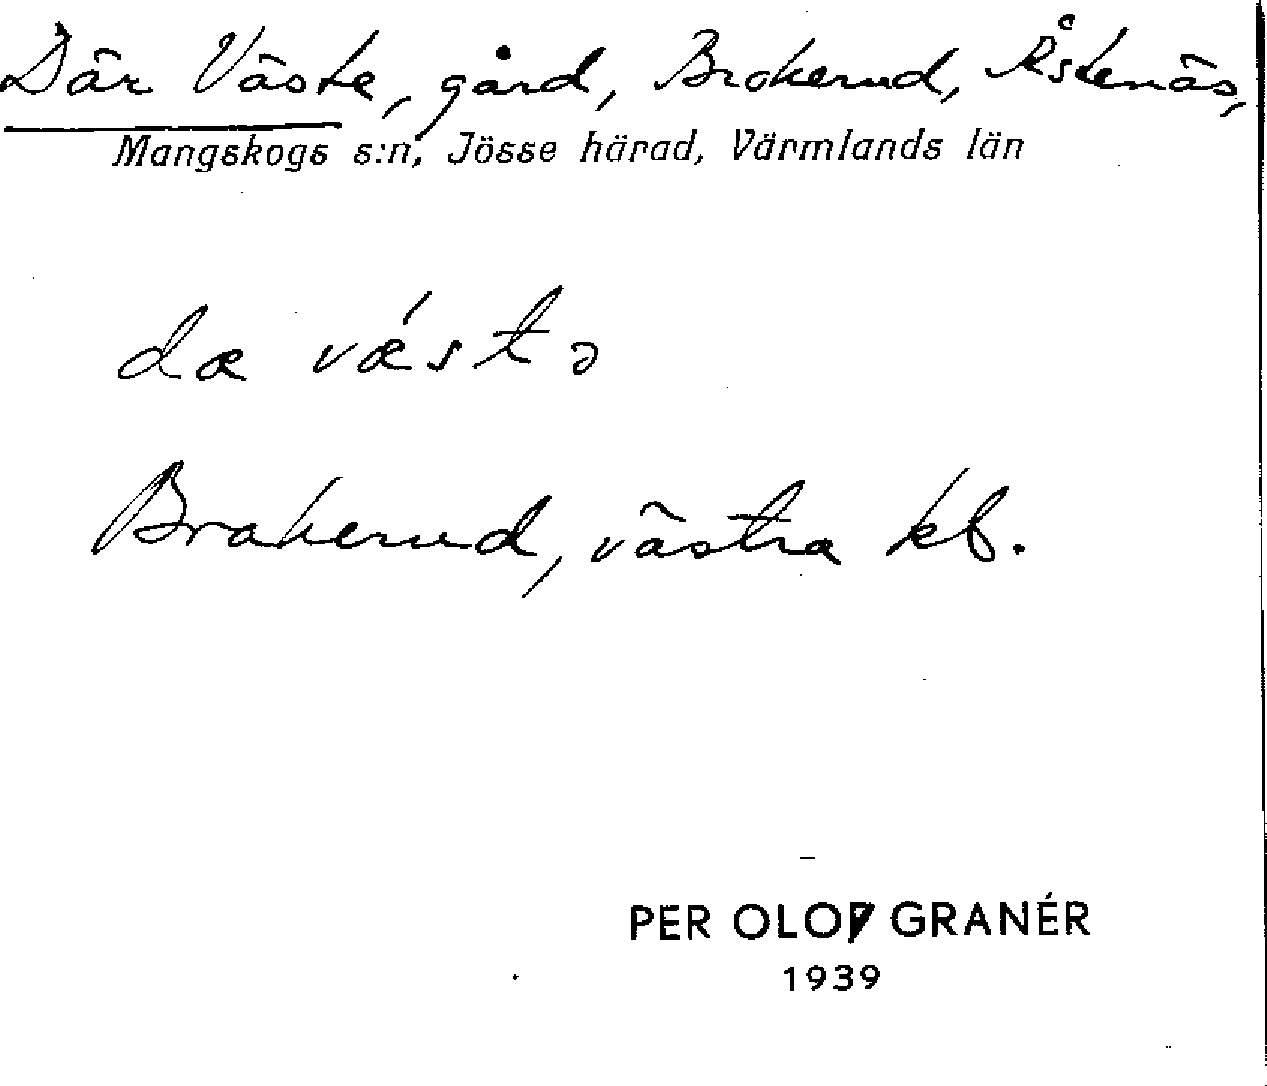 Där Väste, gård, Brokerud, Åstenäs,
Mangskogs s:n, Jösse härad, Värmlands län
dæ vǽstə
Brakerud, västra kb.
PER OLOF GRANÉR
1939